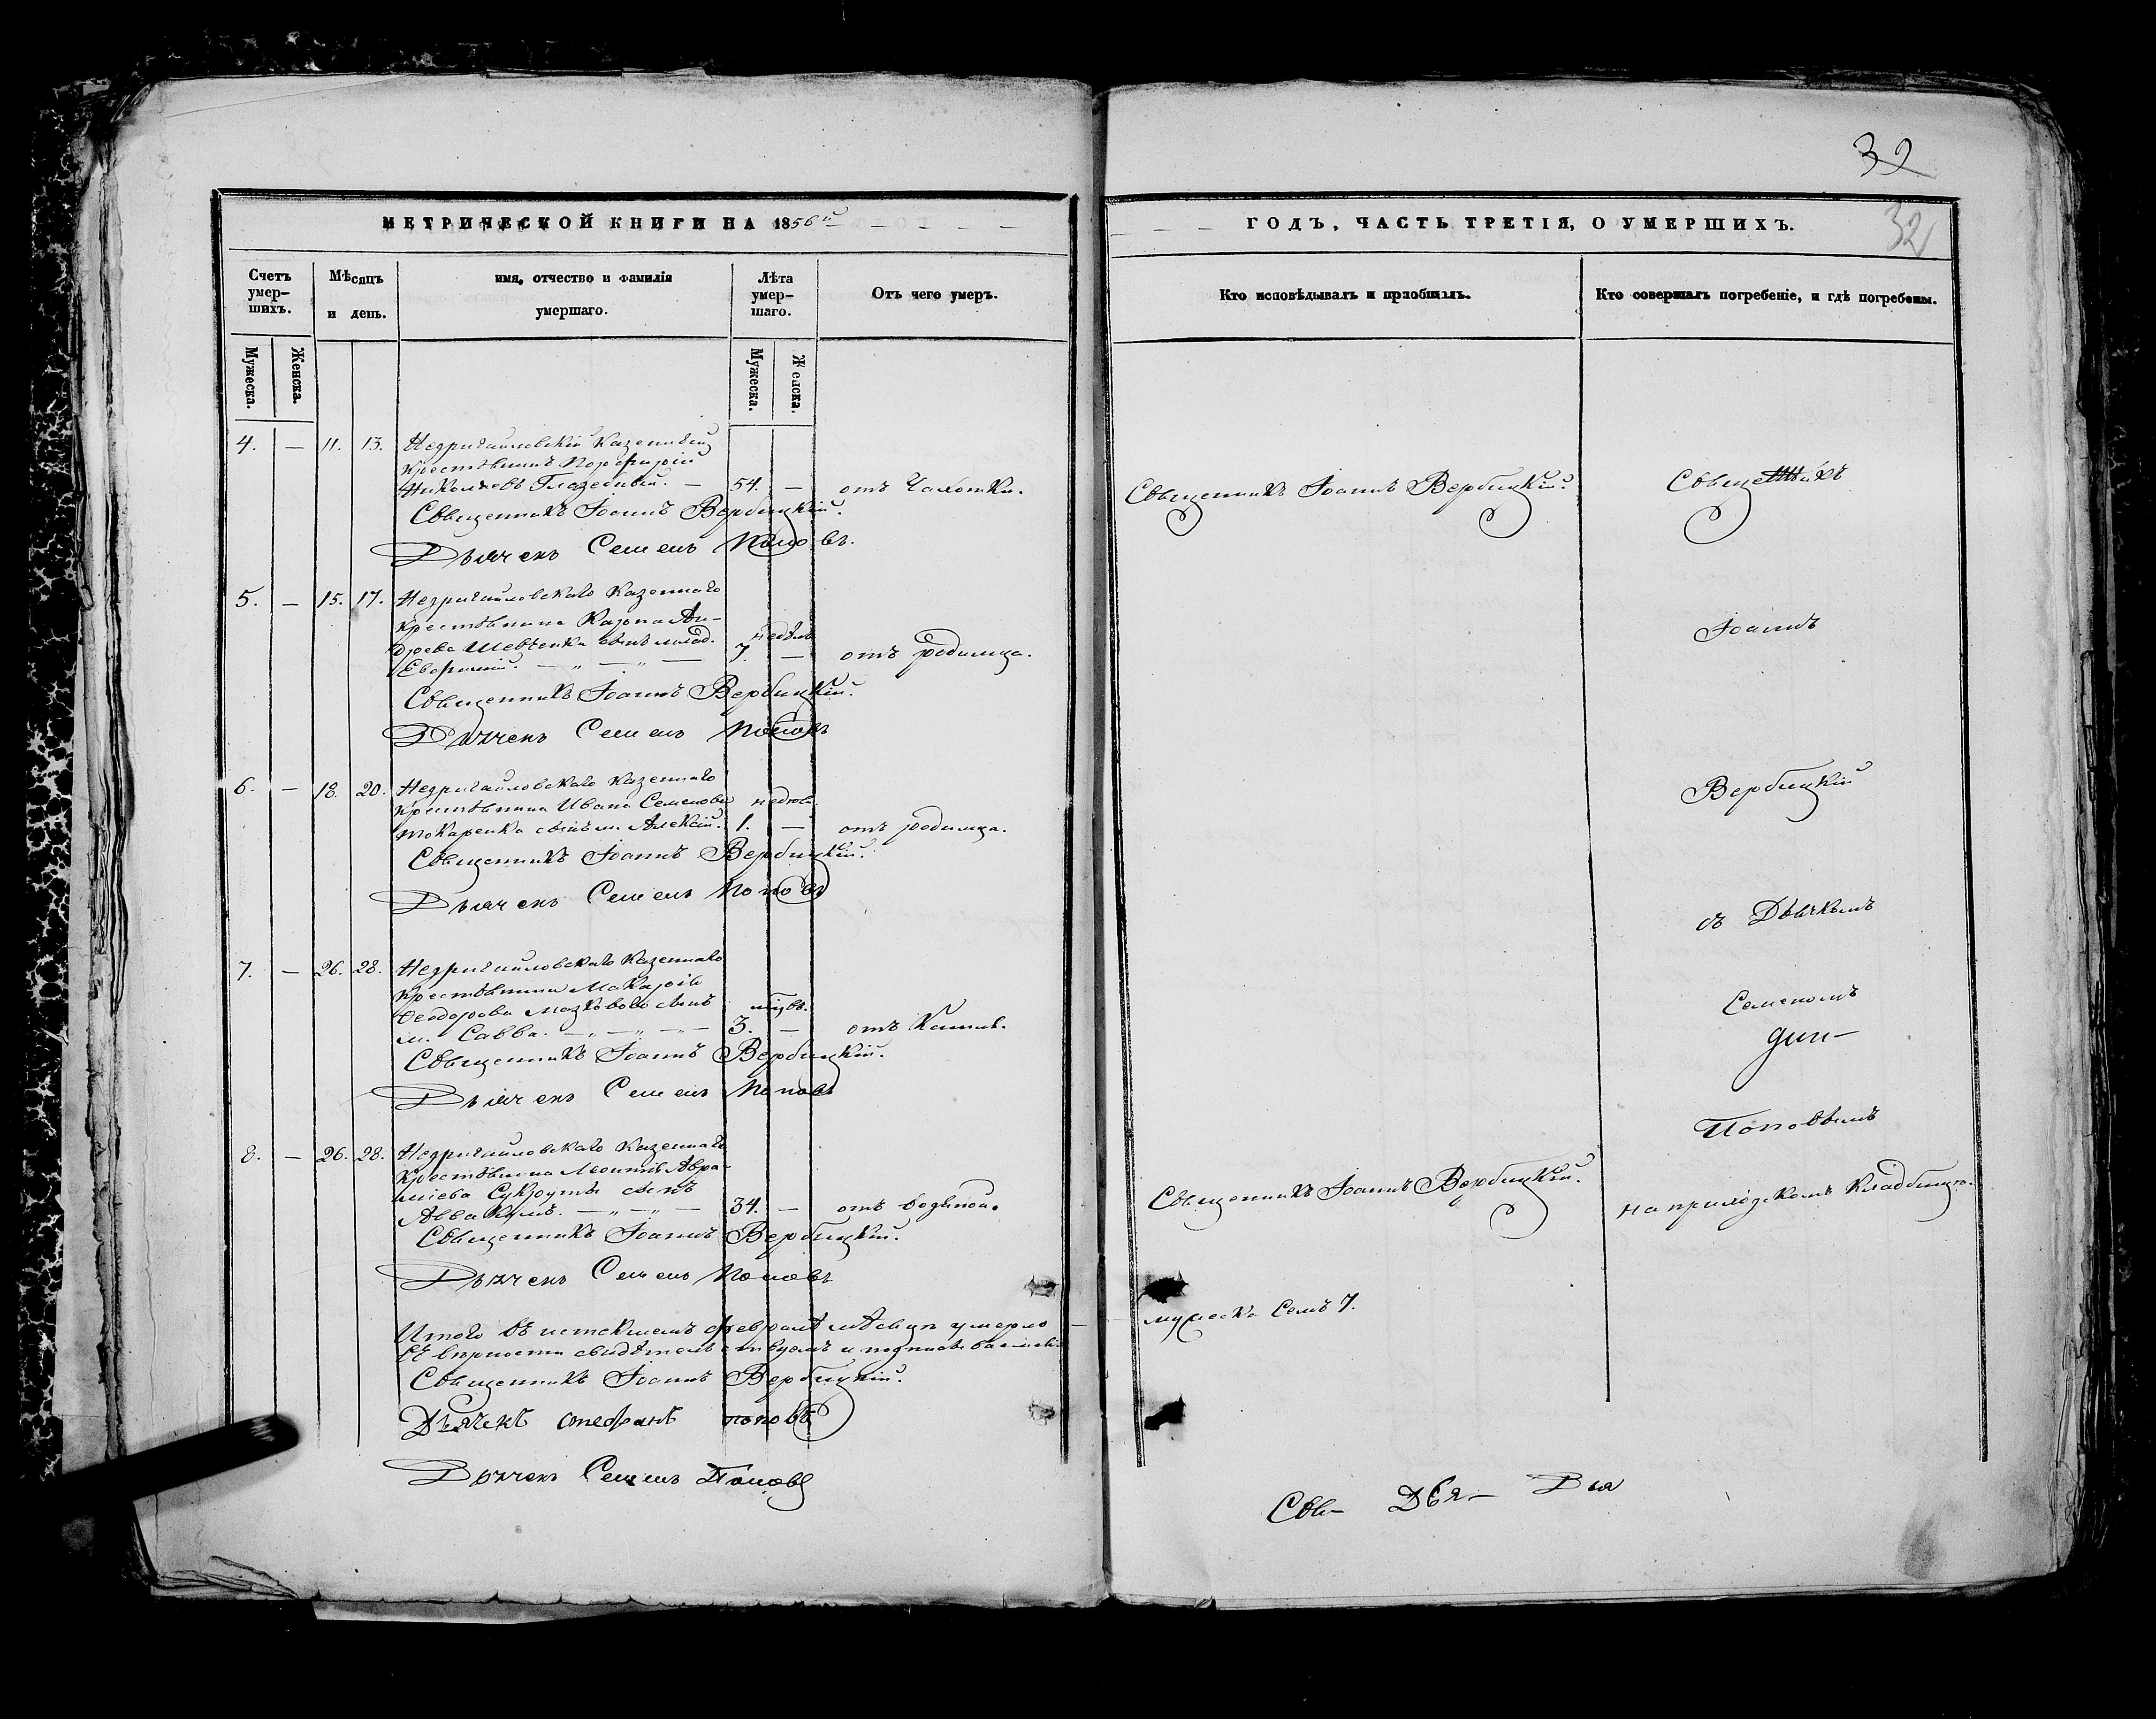 32
МЕТРИЧЕСКОЙ КНИГИ НА 1856й
ГОДЪ, ЧАСТЬ ТРЕТІЯ, О УМЕРШИХЪ.
32
Счетъ умер-шихъ.
Мѣсяцъ и день.
имя, отчество и фамилія умершаго.
Лѣта умер-шаго.
Отъ чего умеръ.
Кто исповѣдывалъ и пріобщалъ.
Кто совершалъ погребеніе, и гдѣ погребены.
Мужеска.
Женска.
Мужеска.
Женска.
4. — 11. 13. Недригайловскій Казенный
крестьянинъ Порфирій
Николаевъ — 54. — отъ Чахотки.
Священникъ Іоаннъ Вербицкій.
Священникъ Іоаннъ Вербицкій.
Дьячекъ Семенъ Поповъ.
5. — 15. 17. Недригайловскаго Казеннаго
крестьянина Карпа Ан-
дреева Шевченка сынъ млад.
недѣль
Евфимій. — „ — „ — 7. — отъ родимца.
Священникъ Іоаннъ Вербицкій.
Дьячекъ Семенъ Поповъ
6. — 18. 20. Недригайловскаго казеннаго
крестьянина Ивана Семенова
токаренка сынъ м. Алексій. 1. — отъ родимца.
Священникъ Іоаннъ Вербицкій.
Дьячекъ Семенъ Поповъ
7. — 26. 28. Недригайловскаго Казеннаго
крестьянина Макарія
Ѳеодорова сынъ
м. Савва. — „ — „ — „ — 3. — отъ Кашля.
Священникъ Іоаннъ Вербицкій.
Дьячекъ Семенъ Поповъ
8. — 26. 28. Недригайловскаго Казеннаго
Крестьянина Леонтія Авра-
міева Сукруты сынъ
Аввакумъ. — „ — „ — 34. — отъ водяной.
Священникъ Іоаннъ Вербицкій.
Священникъ Іоаннъ Вербицкій.
Дьячекъ Семенъ Поповъ
Священникъ
Іоаннъ
Вербицкій
съ Дьячкомъ
Семеномъ
Поповымъ
на приходскомъ кладбищѣ.
Итого въ истекшемъ февралѣ мѣсяцѣ умерло —
мужеска Семь 7.
Въ вѣрности свидѣтельствуемъ и подписываемся
Священникъ Іоаннъ Вербицкій.
Дьячекъ стефанъ поповъ
Дьячекъ Семенъ Поповъ
Свя— Дья— Дья